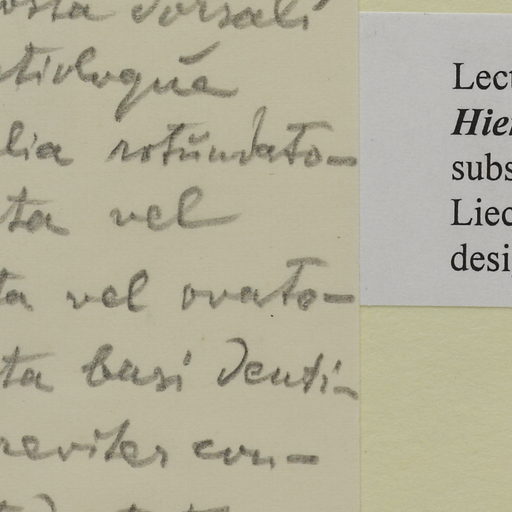 dorsali
lia rotundato-
ta vel
ta vel ovato-
ta basi denti-
reviter con-
Lect
Hier
subs
Liec
desi